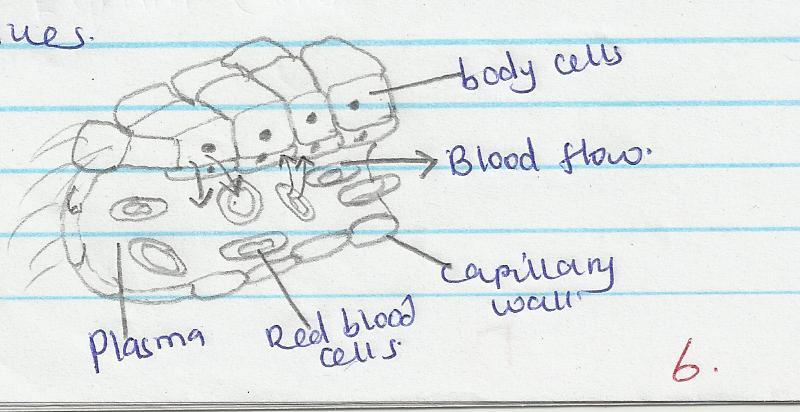 ues.
body cells
Blood flow.
capillary
wall.
Plasma
Red blood
cells.
6.